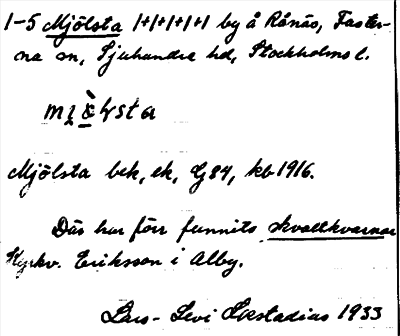 1-5 Mjölsta 1+1+1+1+1 by å Rånäs, Faster-
na sn, Sjuhundra hd, Stockholms l.
Mjölsta bek, ek, G 84, kb 1916.
Där har förr funnits skvaltkvarnar
Kyrkv. Eriksson i Alby.
Lars-Levi Læstadius 1933